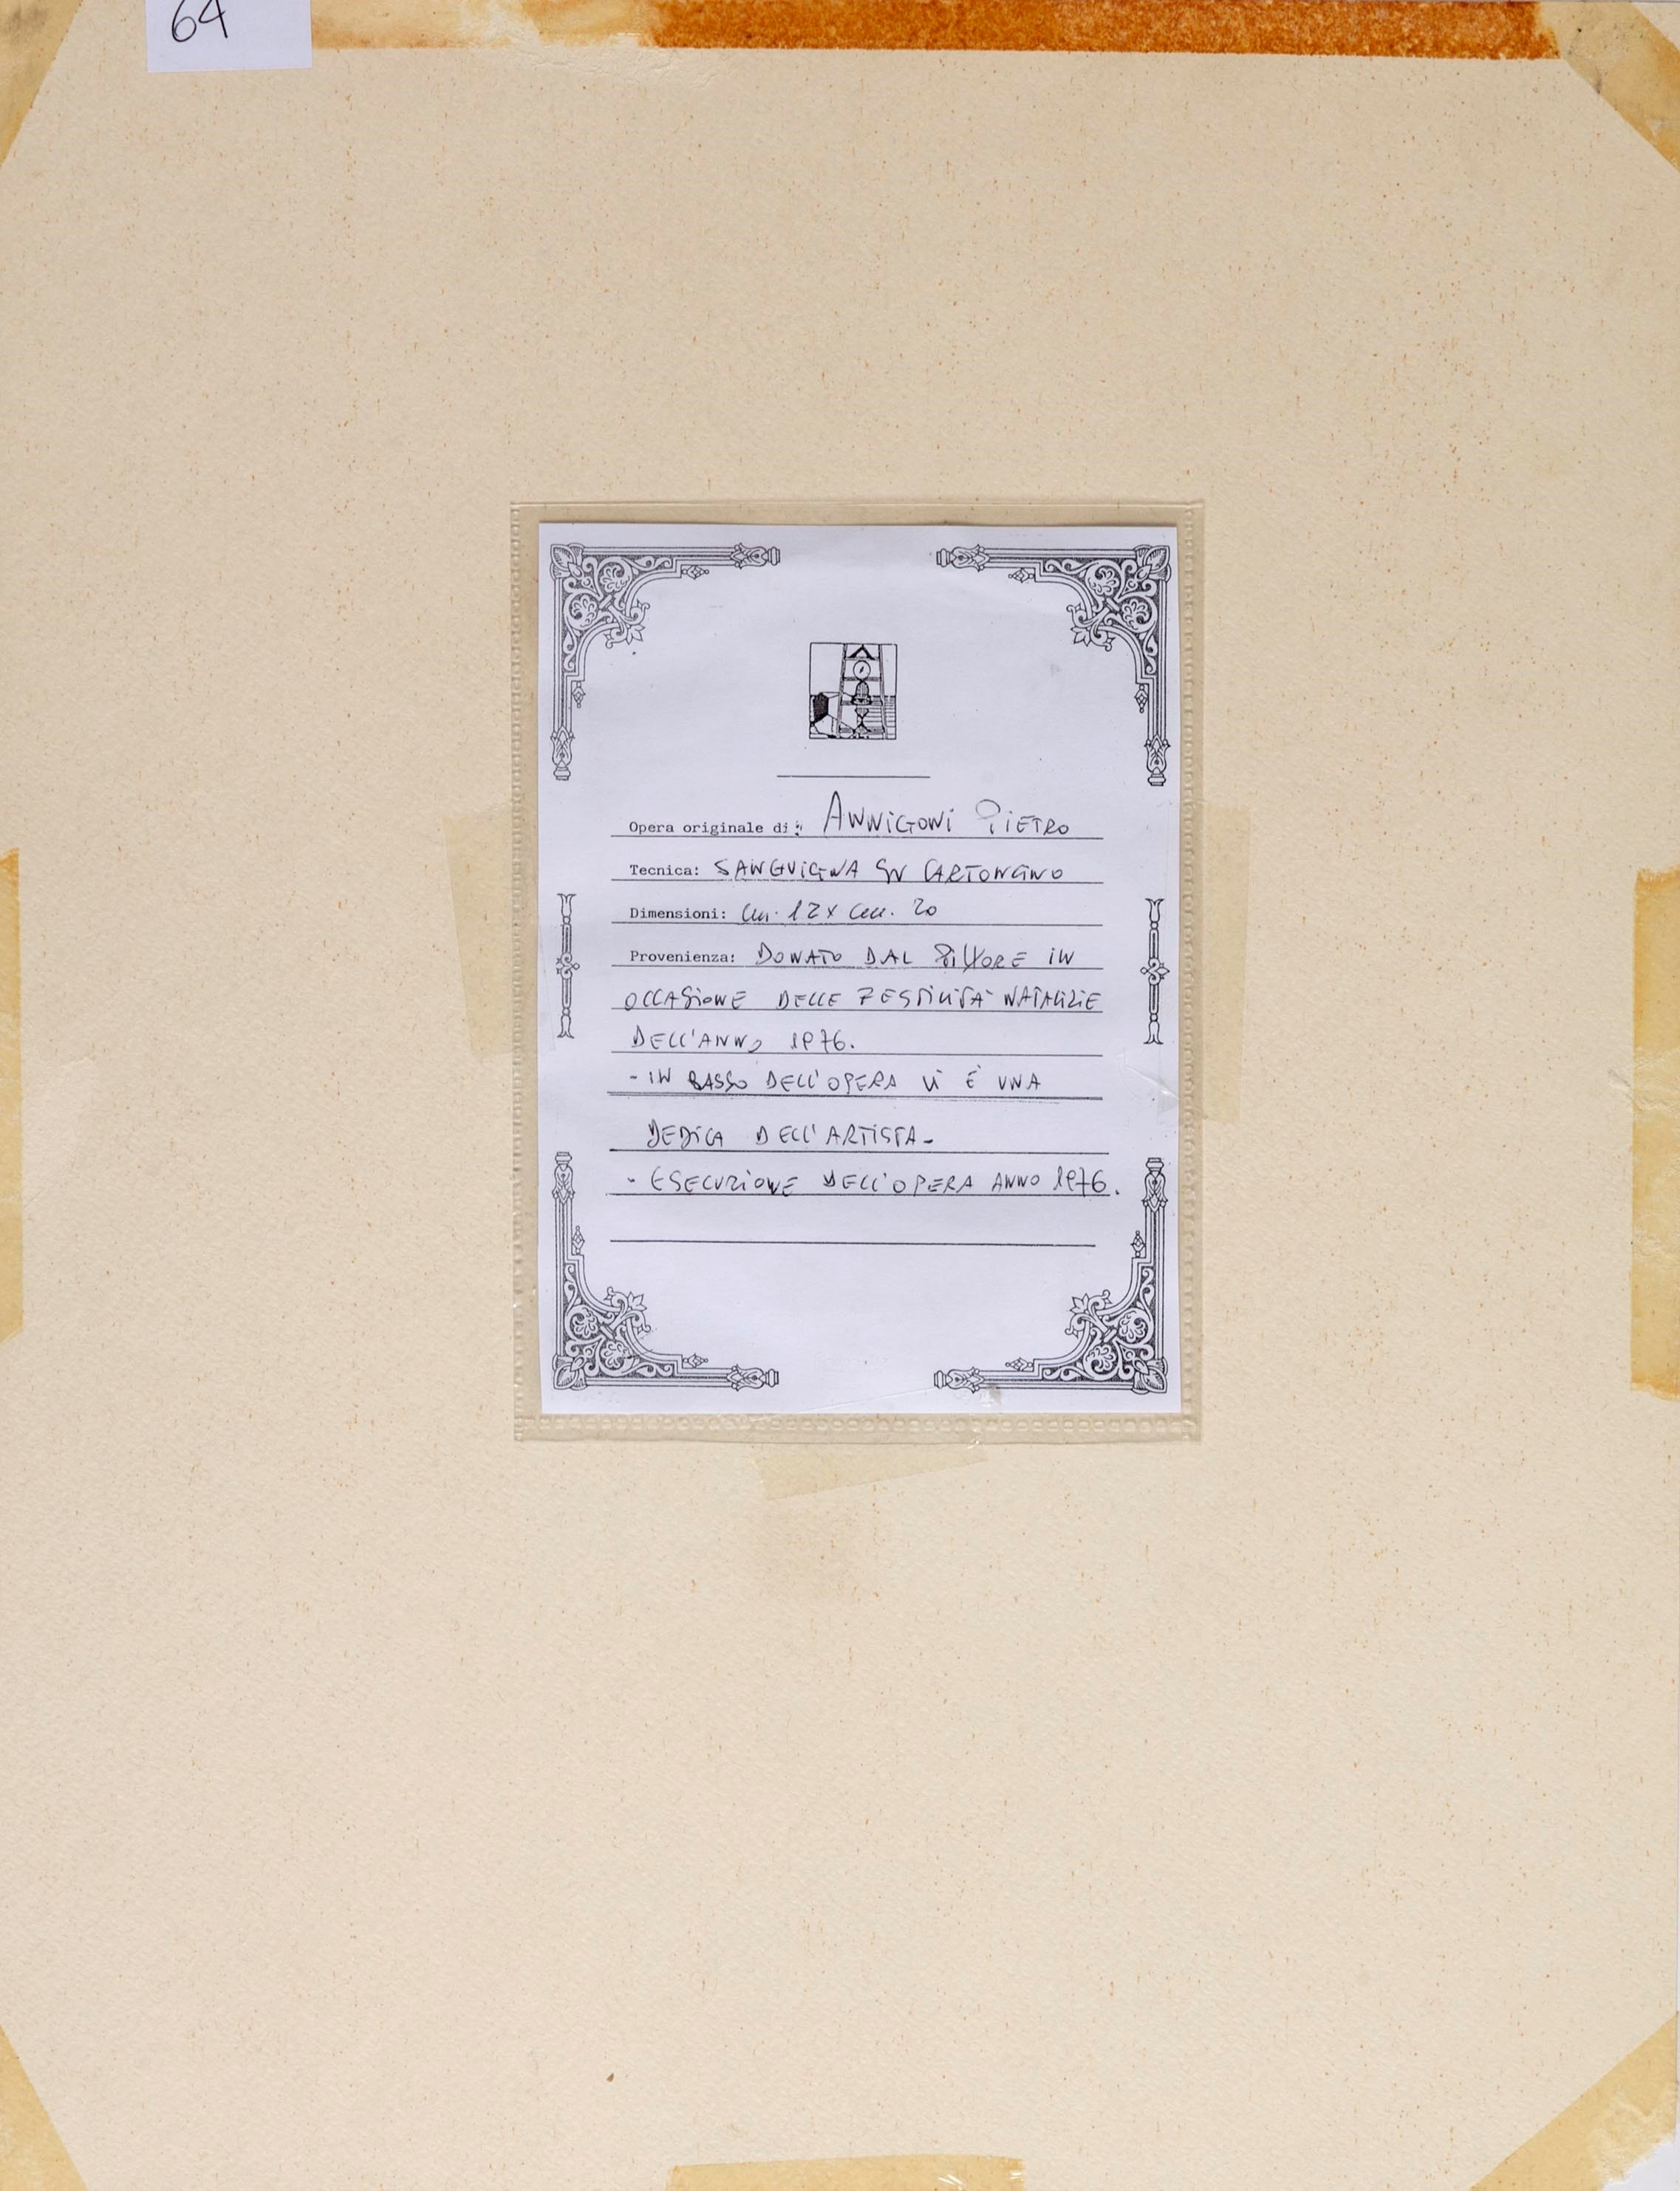 64
Opera originale di: ANNIGONI PIETRO
Tecnica: SANGUIGNA SU CARTONCINO
Dimensioni: cm. 12 x cm. 20
Provenienza: DONATO DAL PITTORE IN
OCCASIONE DELLE FESTIVITÀ NATALIZIE
DELL'ANNO 1976.
- IN BASSO DELL'OPERA VI È UNA
DEDICA DELL'ARTISTA-
- ESECUZIONE DELL'OPERA ANNO 1976.